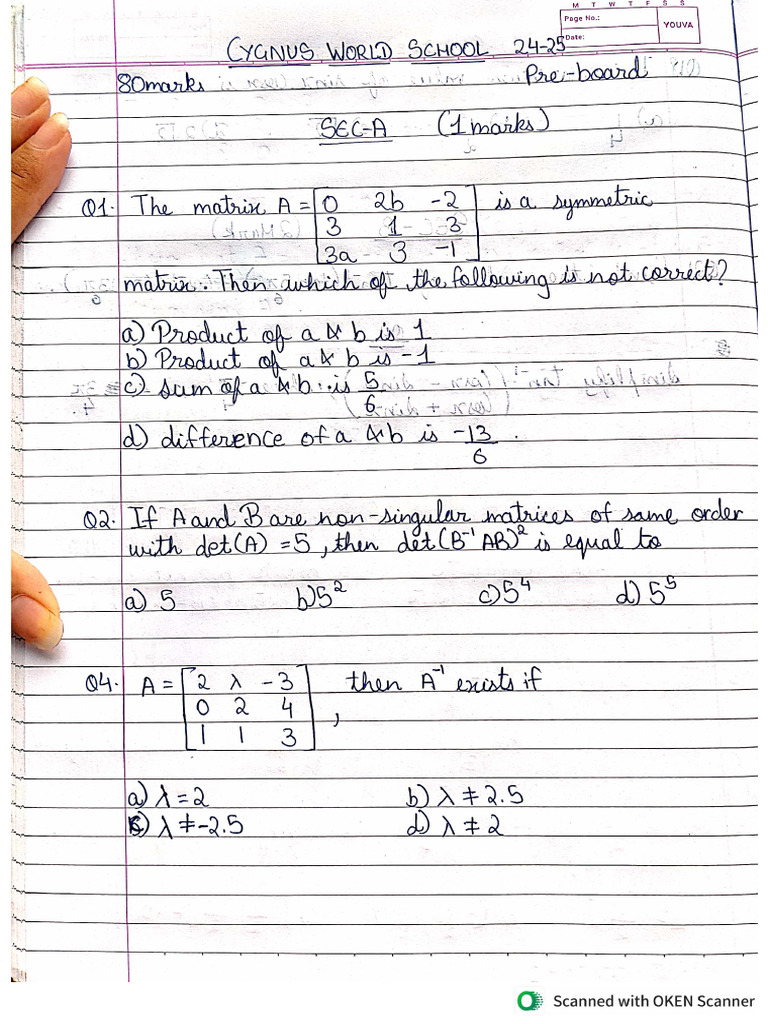 M T W T F S S
Page No.:
YOUVA
Date:
CYGNUS WORLD SCHOOL 24-25
80marks Pre-board
SEC-A (1 marks)
Q1. The matrix A = [0 2b -2 is a symmetric
3 1 3
3a 3 -1]
matrix. Then which of the following is not correct?
a) Product of a & b is 1
b) Product of a & b is -1
c) sum of a & b is 5/6
d) difference of a & b is -13/6.
Q2. If A and B are non-singular matrices of same order
with det(A) = 5, then det(B⁻¹AB)² is equal to
a) 5 b) 5² c) 5⁴ d) 5⁵
Q4. A = [2 λ -3 then A⁻¹ exists if
0 2 4
1 1 3],
a) λ = 2 b) λ ≠ 2.5
c) λ ≠ -2.5 d) λ ≠ 2
Scanned with OKEN Scanner